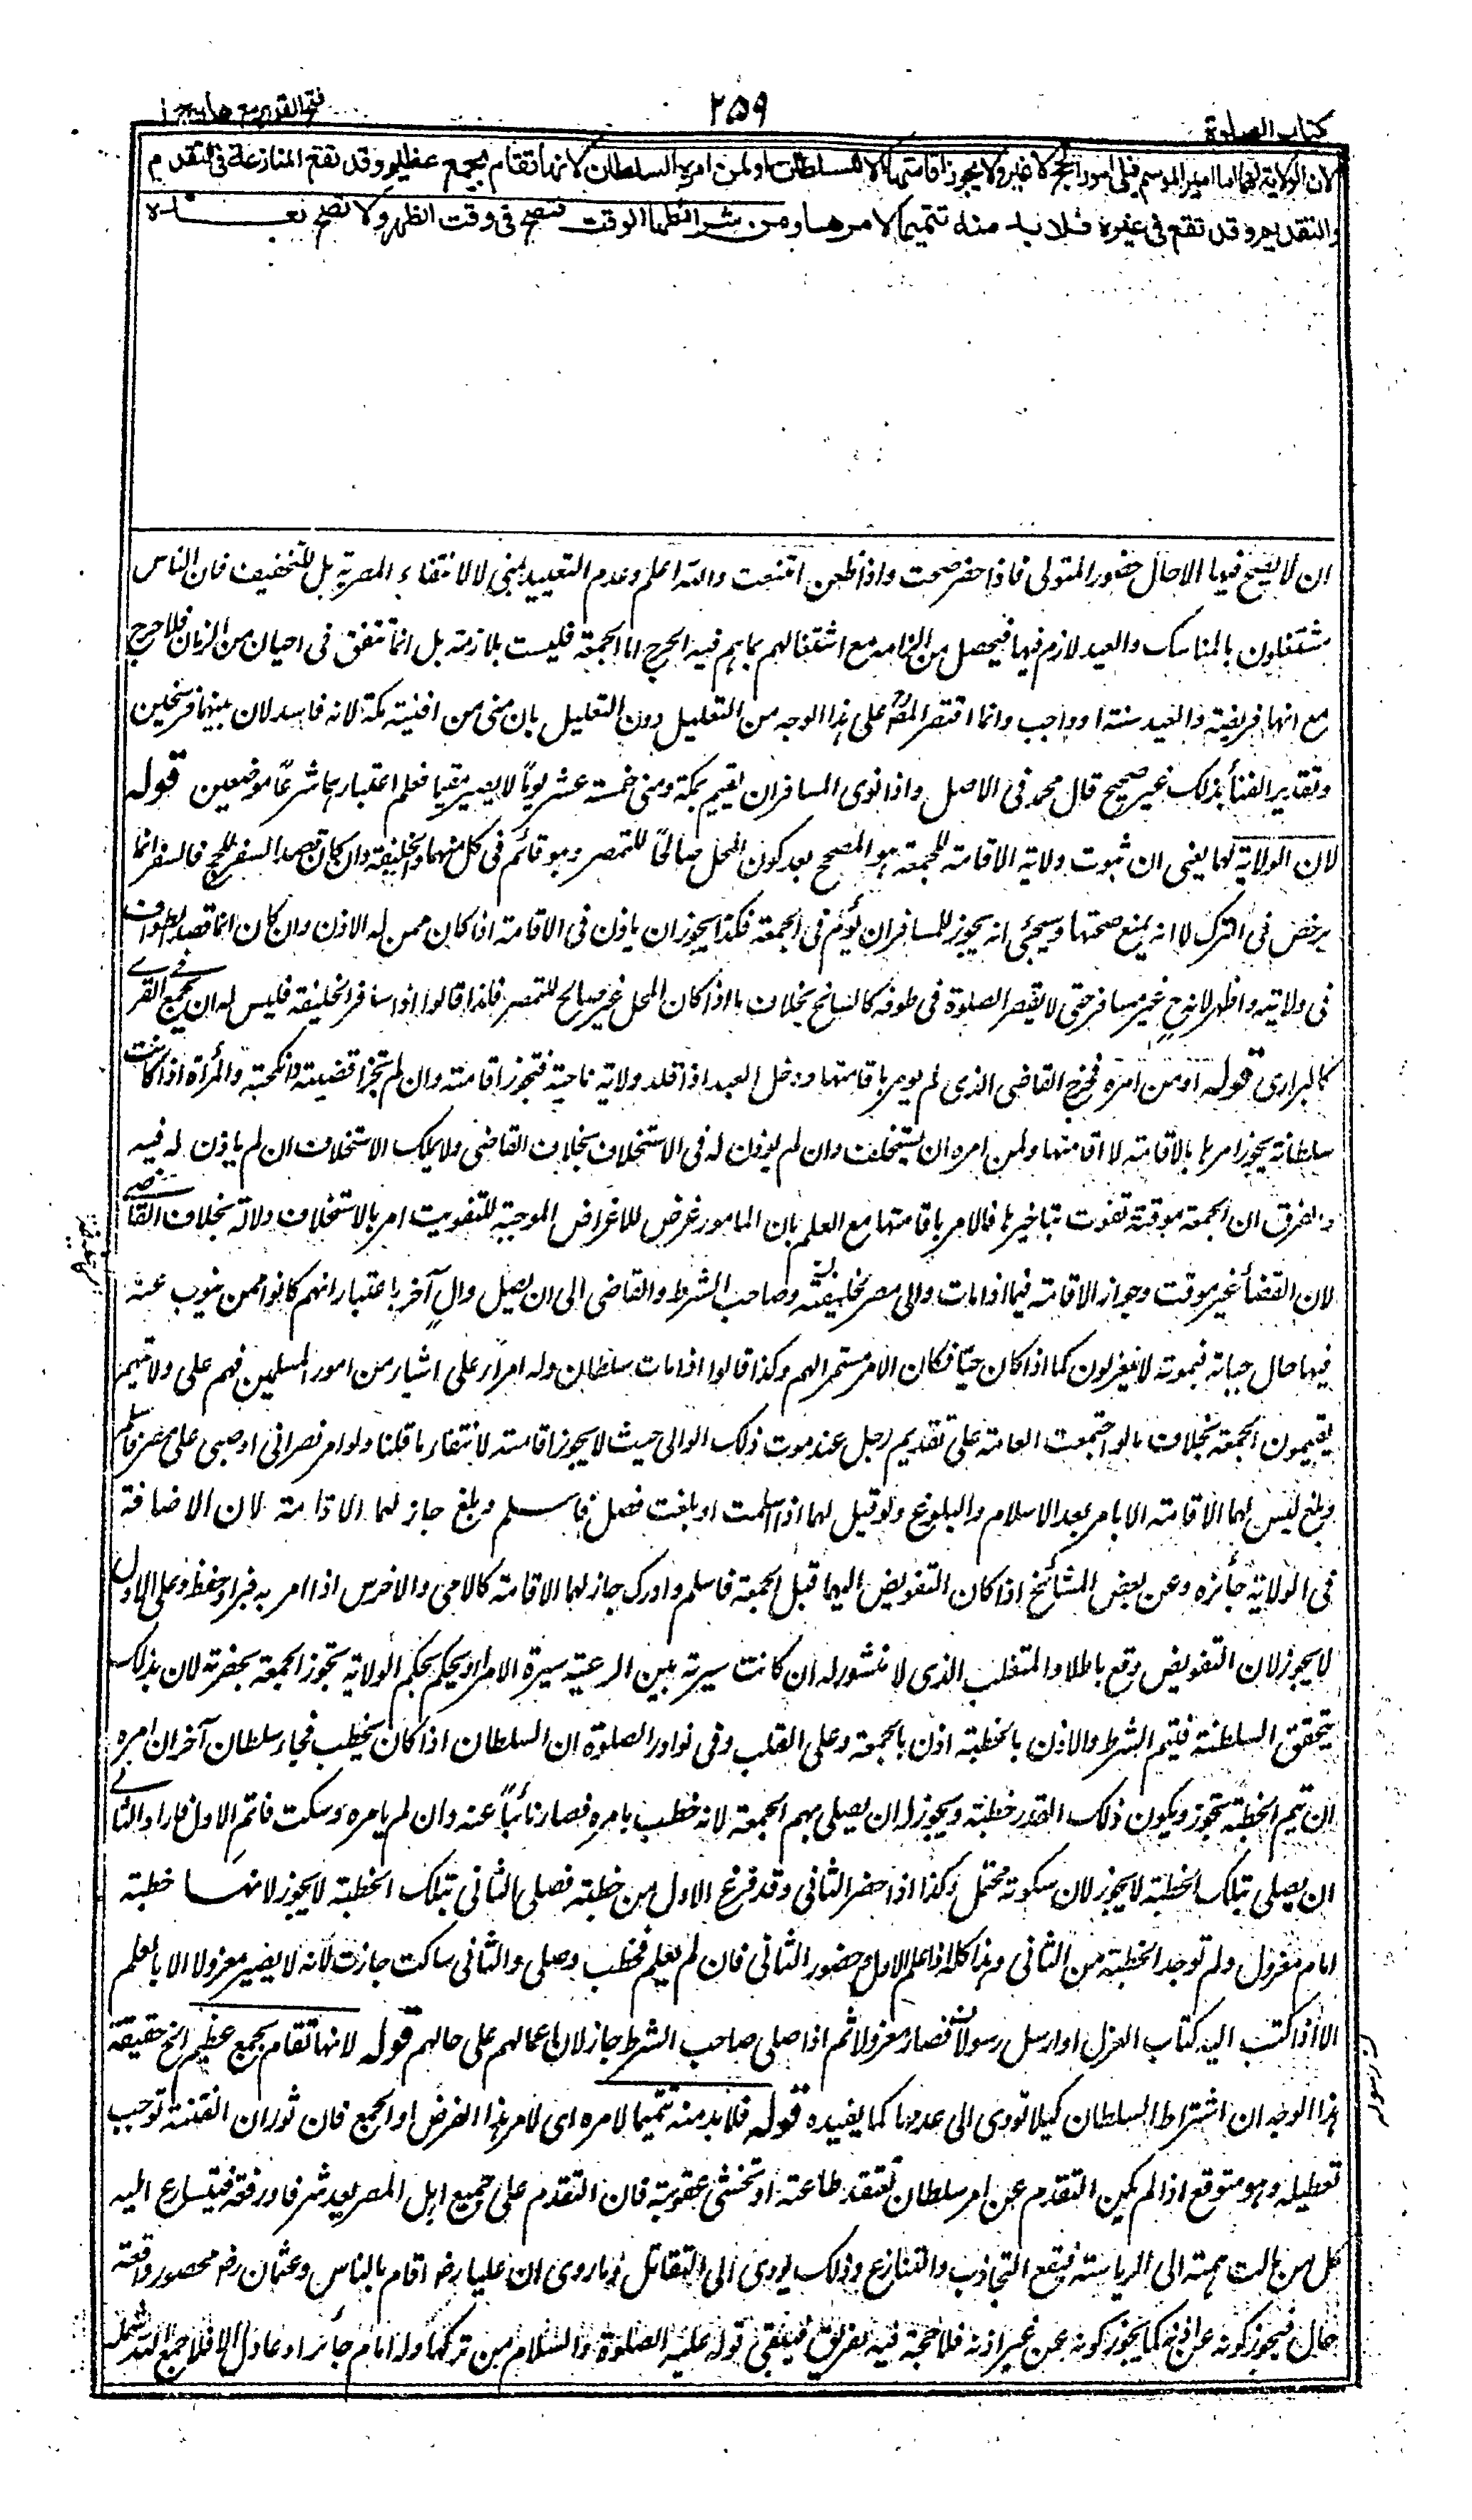 كتاب الصلوة
٢٥٩
فتح القدير مع هدايه ج ١
لان الولاية لهما اما امير الموسم فيلى امور الحج لا غير ولا يجوز اقامتها الا للسلطان او لمن امره السلطان لانها تقام بجمع عظيم وقد تقع المنازعة فى التقدم
والتقديم وقد تقع فى غيره فلا بد منه تتميما لامرها ومن شرائطها الوقت فتصح فى وقت الظهر ولا تصح بعده
ان لا يصح فيها الا حال حضور المتولى فاذا حضر صحت واذا ظعن امتنعت والله اعلم وعدم التعييد بمنى لا لانتفاء المصرية بل للتخفيف فان الناس
مشتغلون بالمناسك والعيد لازم فيها فيحصل من الزامه مع اشتغالهم بما هم فيه الحرج اما الجمعة فليست بلازمة بل انما تتفق فى احيان من الزمان فلا حرج
مع انها فريضة والعيد سنة او واجب وانما اقتصر المصرح على هذا الوجه من التعليل دون التعليل بان منى من افنية مكة لانه فاسد لان بينهما فرسخين
وتقدير الفناء بذلك غير صحيح قال محمد فى الاصل واذا نوى المسافر ان يقيم بمكة ومنى خمسة عشر يوماً لا يصير مقيما فعلم اعتبارهما شرعاً موضعين قوله
لان الولاية لهما يعنى ان ثبوت ولاية الاقامة للجمعة هو المصحح بعد كون المحل صالحًا للتمصر وهو قائم فى كل منهما والخليفة وان كان قصد السفر للحج فالسفر انما
يرخص فى الترك لا انه يمنع صحتها وسيجئ انه يجوز للمسافر ان يؤم فى الجمعة فكذا يجوز ان ياذن فى الاقامة اذا كان ممن له الاذن وان كان انما قصد الطواف
فى ولايته واظهر لانه ح غير مسافر حتى لا يقصر الصلوة فى طوفه كالسائح بخلاف ما اذا كان المحل غير صالح للتمصر فلذا قالوا اذا سافر الخليفة فليس له ان يجمع فى القرے
كالبرارى قوله او من امره فخرج القاضى الذى لم يومر باقامتها ودخل العبد اذا قلد ولاية ناحية فتجوز اقامته وان لم تجز اقضيته وانكحته والمرأة اذا كانت
سلطانة يجوز امرها بالاقامة لا اقامتها ولمن امره ان يستخلف وان لم يوذن له فى الاستخلاف بخلاف القاضى ولا يملك الاستخلاف ان لم ياذن له فيه
والفرق ان الجمعة موقتة تفوت بتاخيرها فالامر باقامتها مع العلم بان المامور عرض للاعراض الموجبة للتفويت امر بالاستخلاف دلالة بخلاف القاضے
لان القضاء غير موقت وجواز الاقامة فيما اذا مات والى مصر لخليفته وصاحب الشرط والقاضى الى ان يصل والٍ آخر باعتبار انهم كانوا ممن ينوب عنه
فيها حال حياته فبموته لا ينعزلون كما اذا كان حيّا فكان الامر مستمرا لهم وكذا قالوا اذا مات سلطان وله امراء على اشياء من امور المسلمين فهم على ولاتيهم
يقيمون الجمعة بخلاف ما لو اجتمعت العامة على تقديم رجل عند موت ذلك الوالى حيث لا يجوز اقامته لانتفاء ما قلنا ولو امر نصرانى او صبى على مصر فاسلم
وبلغ ليس لهما الاقامة الا بامر بعد الاسلام والبلوغ ولو قيل لهما اذا اسلمت او بلغت فصل فاسلم وبلغ جاز لهما الاقامة لان الاضافة
فى الولاية جائزه وعن بعض المشائخ اذا كان التفويض اليهما قبل الجمعة فاسلم وادرك جاز لهما الاقامة كالامى والاخرس اذا امر به فبرأ وحفظ وعلى الاول
لا يجوز لان التفويض وقع باطلا والمتغلب الذى لا منشور له ان كانت سيرته بين الرعية سيرة الامراء ويحكم بحكم الولاية تجوز الجمعة بحضرته لان بذلك
تتحقق السلطنة فيتم الشرط والاذن بالخطبة اذن بالجمعة وعلى القلب وفى نوادر الصلوة ان السلطان اذا كان يخطب فجاء سلطان آخر ان امره
ان يتم الخطبة تجوز ويكون ذلك القدر خطبة ويجوز له ان يصلى بهم الجمعة لانه خطب بامره فصار نائباً عنه وان لم يامره وسكت فاتم الاول فاراد الثانے
ان يصلى بتلك الخطبة لا يجوز لان سكوته محتمل وكذا اذا حضر الثانى وقد فرغ الاول من خطبة فصلى الثانى بتلك الخطبة لا يجوز لانها خطبة
امام معزول ولم توجد الخطبة من الثانى وهذا كله اذا علم الاول حضور الثانى فان لم يعلم فخطب وصلى والثانى ساكت جازت لانه لا يصير معزولا الا بالعلم
الا اذا كتب اليه كتاب العزل او ارسل رسولا فصار معزولا ثم اذا صلى صاحب الشرط جاز لان عمالهم على حالهم قوله لانها تقام بجمع عظيم الخ حقيقة
هذا الوجه ان اشتراط السلطان كيلا تودى الى عدمها كما يفيده قوله فلا بد منه تتميما لامره اى لامر هذا الفرض او الجمع فان ثوران الفتنة توجب
تعطيله وهو متوقع اذا لم يكن التقدم عن امر سلطان تعتقد طاعته او تخشى عقوبته فان التقدم على جميع اهل المصر يعد شرفا ورفعة فيتسارع اليه
كل من مالت همته الى الرياسة فيقع التجاذب والتنازع وذلك يودى الى التقاتل وما روى ان عليا رض اقام بالناس وعثمان رض محصور واقعة
حال فيجوز كونه عن اذنه كما يجوز كونه عن غير اذنه فلا حجة فيه لفريق فيبقى قوله عليه الصلوة والسلام من تركها وله امام جائر او عادل الا فلا جمع الله شمله